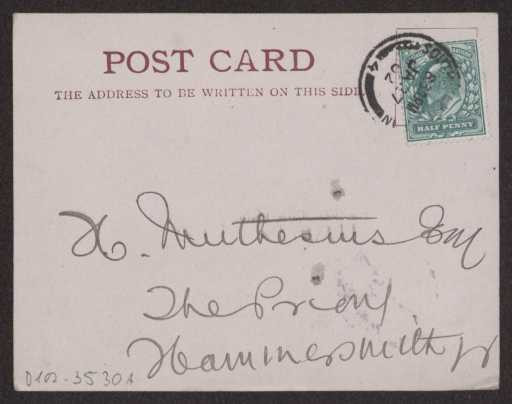 POST CARD
THE ADDRESS TO BE WRITTEN ON THIS SIDE
HALF PENNY
H. Muthesius Esq
The Priory
Hammersmith W
D102-3530A